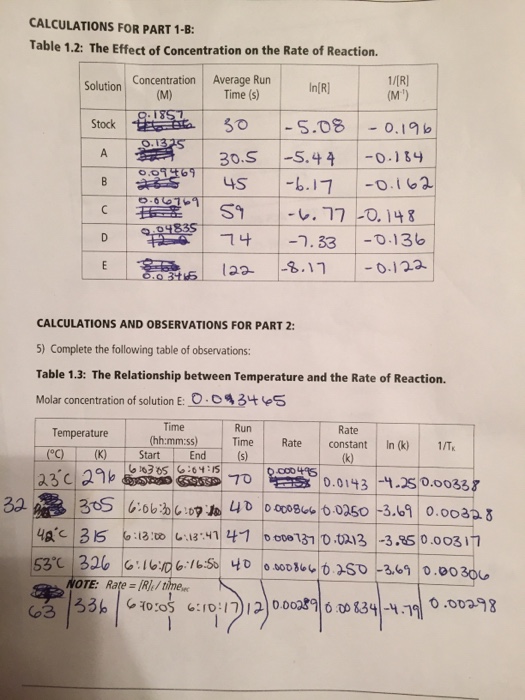 CALCULATIONS FOR PART 1-B:
Table 1.2: The Effect of Concentration on the Rate of Reaction.
Solution Concentration (M) Average Run Time (s) ln[R] 1/[R] (M⁻¹)
Stock 0.1857 30 -5.08 -0.196
A 0.1325 30.5 -5.44 -0.184
B 0.09469 45 -6.17 -0.162
C 0.06769 59 -6.77 -0.148
D 0.04835 74 -7.33 -0.136
E 0.03465 122 -8.17 -0.122
CALCULATIONS AND OBSERVATIONS FOR PART 2:
5) Complete the following table of observations:
Table 1.3: The Relationship between Temperature and the Rate of Reaction.
Molar concentration of solution E: 0.03465
Temperature Time (hh:mm:ss) Run Time (s) Rate Rate constant (k) ln (k) 1/Tₖ
(°C) (K) Start End
23°C 296 6:03:05 6:04:15 70 0.000495 0.0143 -4.25 0.00338
32 305 6:06:30 6:07:10 40 0.000866 0.0250 -3.69 0.00328
42°C 315 6:13:00 6:13:47 47 0.000737 0.0213 -3.85 0.00317
53°C 326 6:16:10 6:16:50 40 0.000866 0.250 -3.69 0.00306
NOTE: Rate = [R]ₜ/ time
63 336 6:10:05 6:10:17 12 0.00289 0.00834 -4.79 0.00298